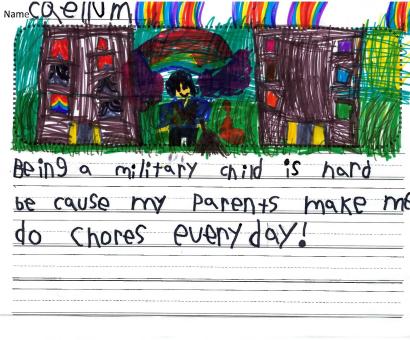 Name caellum
Being a military child is hard
be cause my parents make me
do chores every day!